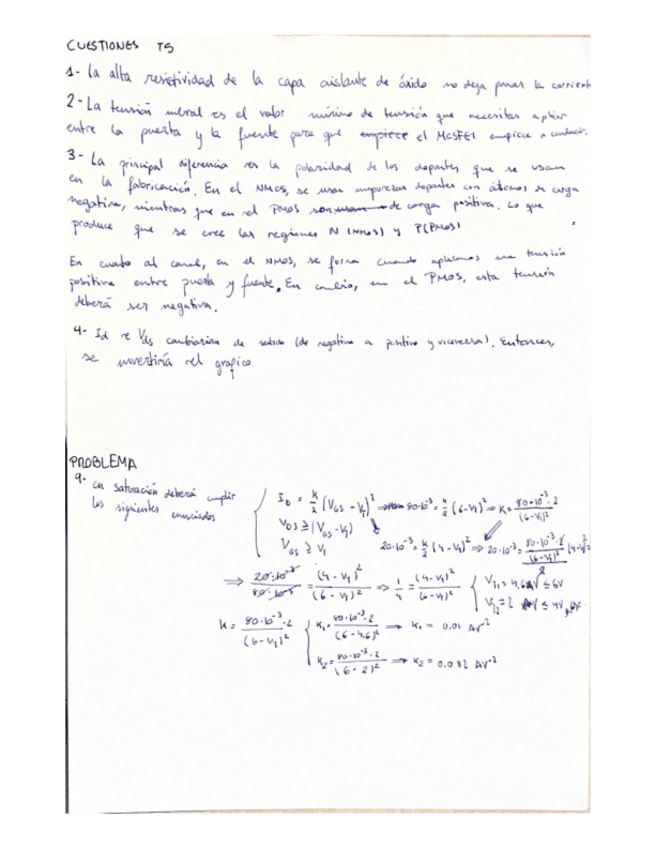 CUESTIONES T5
1- La alta resistividad de la capa aislante de óxido no deja pasar la corriente
2- La tensión umbral es el valor mínimo de tensión que necesitas aplicar
entre la puerta y la fuente para que empiece el MOSFET empiece a conducir.
3- La principal diferencia es la polaridad de los dopantes que se usan
en la fabricación. En el NMOS, se usan impurezas dopantes con átomos de carga
negativa, mientras que en el PMOS son usan de carga positiva. Lo que
produce que se cree las regiones N (NMOS) y P (PMOS)
En cuanto al canal, en el NMOS, se forma cuando aplicamos una tensión
positiva entre puerta y fuente. En cambio, en el PMOS, esta tensión
deberá ser negativa.
4- Id e Vds cambiarían de sentido (de negativo a positivo y viceversa). Entonces,
se invertiría el grafico
PROBLEMA
9- en saturación deberá cumplir
los siguientes enunciados
I_D = K/2 (V_GS - V_T)² ⇒ 80·10⁻³ = K/2 (6-V_T)² ⇒ K = 80·10⁻³·2 / (6-V_T)²
V_DS ≥ (V_GS - V_T)
V_GS ≥ V_T
20·10⁻³ = K/2 (4-V_T)² ⇒ 20·10⁻³ = (80·10⁻³·2 / (6-V_T)²) / 2 (4-V_T)²
⇒ 20·10⁻³ / 80·10⁻³ = (4-V_T)² / (6-V_T)² ⇒ 1/4 = (4-V_T)² / (6-V_T)² { V_T1 = 4.6 V ≤ 6V
V_T2 = 2 V ≤ 4V
K = 80·10⁻³·2 / (6-V_T)² { K₁ = 80·10⁻³·2 / (6-4.6)² ⇒ K₁ = 0.01 AV⁻²
K₂ = 80·10⁻³·2 / (6-2)² ⇒ K₂ = 0.082 AV⁻²